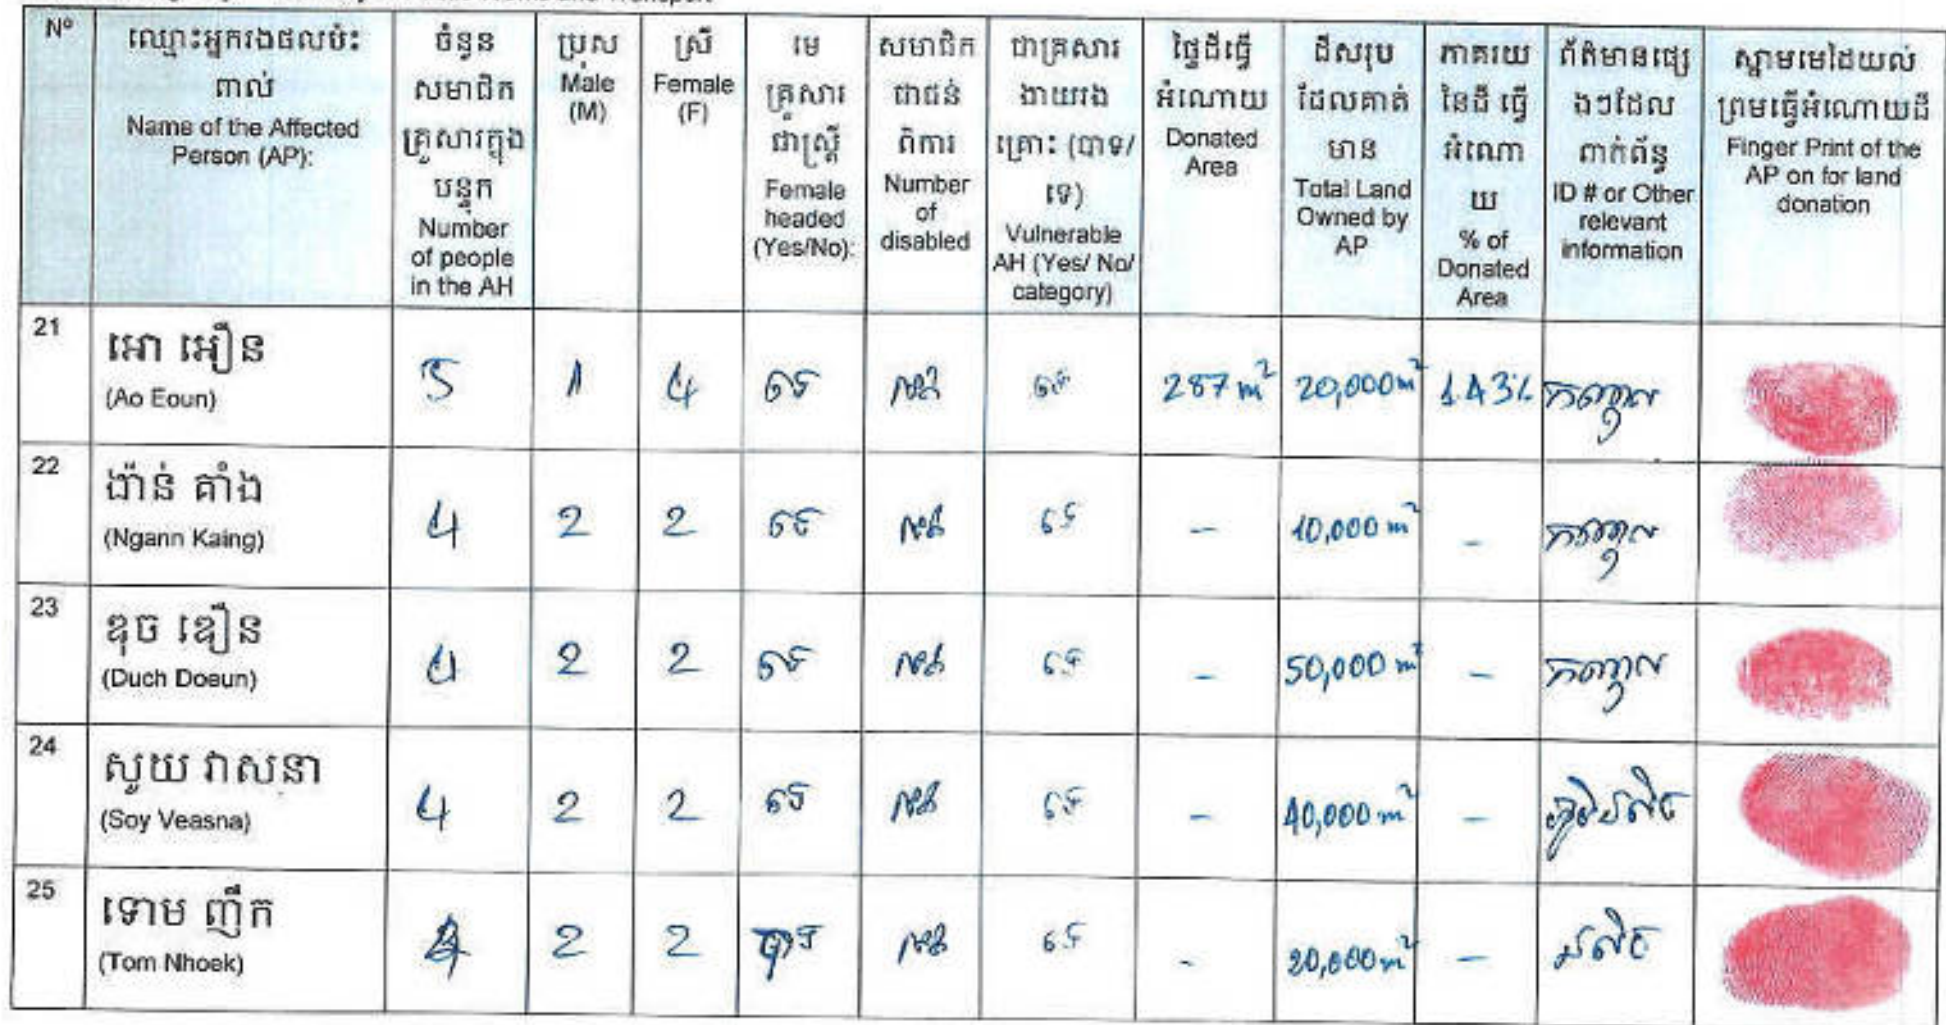 Nº
ឈ្មោះអ្នករងផលប៉ះ
ពាល់
Name of the Affected
Person (AP):
ចំនួន
សមាជិក
គ្រួសារក្នុង
បន្ទុក
Number
of people
in the AH
ប្រុស
Male
(M)
ស្រី
Female
(F)
មេ
គ្រួសារ
ជាស្ត្រី
Female
headed
(Yes/No):
សមាជិក
ជាជន់
ពិការ
Number
of
disabled
ជាគ្រសារ
ងាយរង
គ្រោះ (បាទ/
ទេ)
Vulnerable
AH (Yes/ No/
category)
ផ្ទៃដីធ្វើ
អំណោយ
Donated
Area
ដីសរុប
ដែលគាត់
មាន
Total Land
Owned by
AP
ភាគរយ
នៃដី ធ្វើ
អំណោ
យ
% of
Donated
Area
ព័ត៌មានផ្សេ
ងៗដែល
ពាក់ព័ន្ធ
ID # or Other
relevant
information
ស្នាមមេដៃយល់
ព្រមធ្វើអំណោយដី
Finger Print of the
AP on for land
donation
21
អោ អឿន
(Ao Eoun)
5
1
4
ទេ
ទេ
287 m²
20,000 m²
1.43%
22
ង៉ាន់ គាំង
(Ngann Kaing)
4
2
2
ទេ
ទេ
-
10,000 m²
-
23
ឌុច ឌឿន
(Duch Doeun)
4
2
2
ទេ
ទេ
-
50,000 m²
-
24
សូយ វាសនា
(Soy Veasna)
4
2
2
ទេ
ទេ
-
40,000 m²
-
25
ទោម ញឹក
(Tom Nhoek)
4
2
2
បាទ
ទេ
-
20,000 m²
-